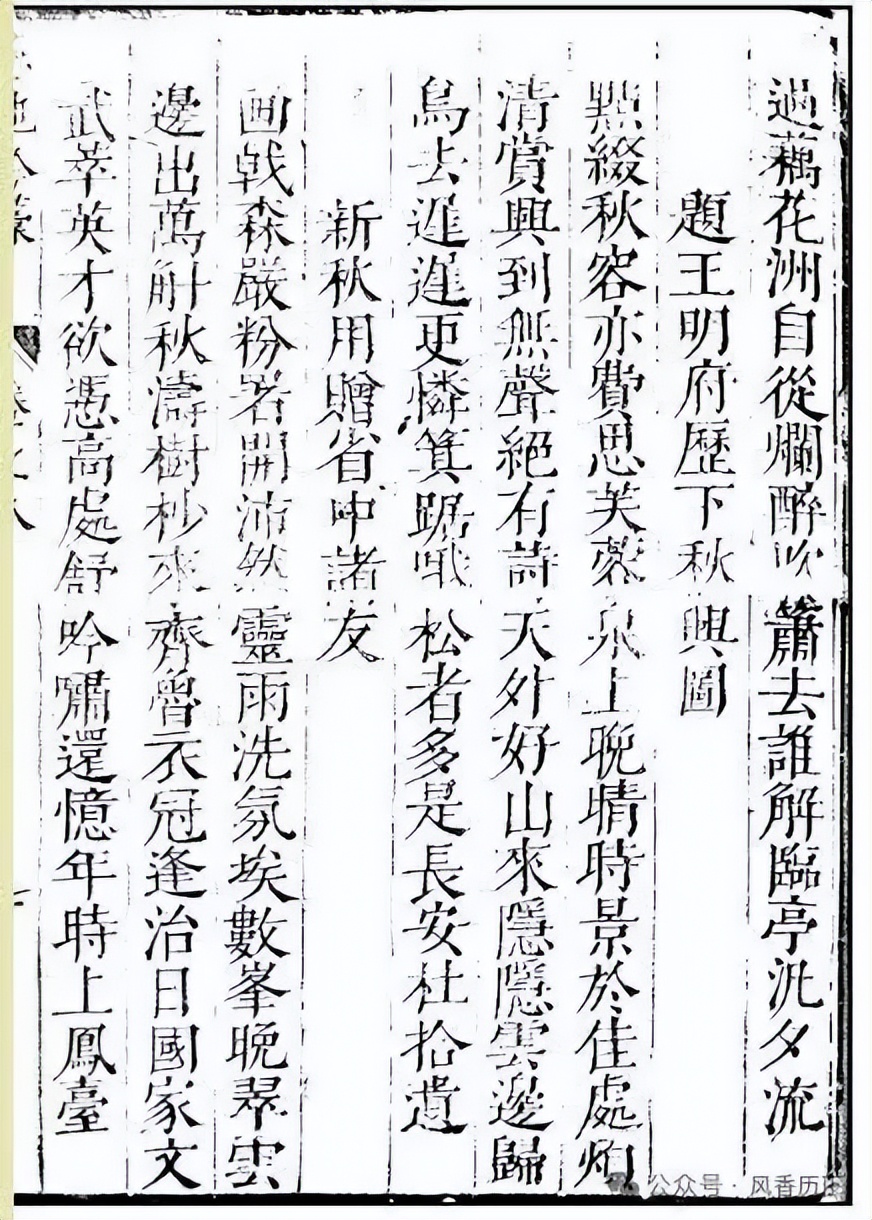 過藕花洲自從爛醉吹簫去誰解臨亭汎夕流
題王明府歷下秋興圖
點綴秋容亦費思芙蓉泉上晚晴時景於佳處炯
清賞興到無聲絕有詩天外好山來隱隱雲邊歸
鳥去遲遲更憐箕踞哦松者多是長安杜拾遺
新秋用贈省中諸友
画戟森嚴粉署開沛然靈雨洗氛埃數峯晚翠雲
邊出萬斛秋濤樹杪來齊魯衣冠逢治日國家文
武萃英才欲憑高處舒吟嘯還憶年時上鳳臺
卷之八
公众号·风香历